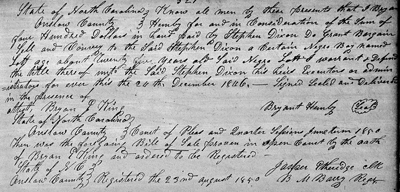 State of North Carolina } Know all men by these presents that I Bryant
Onslow County } Henly for and in Consideration of the Sum of
four Hundred Dollars in hand paid by Stephen Dixon do Grant Bargain
Sell and Convey to the Said Stephen Dixon a Certain Negro Boy named
Luff age about Twenty five years old Said Negro Luff I warrant & Defend
the title there of unto the Said Stephen Dixon his heirs Executors or admin
istrators for ever this the 20th December 1846 Signed Sealed and Delivered
in the presence of
attest Bryan J King Bryant Henly Seal
State of North Carolina
Onslow County } Court of Pleas and Quarter Sessions June term 1850
Then was the foregoing Bill of Sale proven in Open Court by the oath
of Bryan J King and ordered to be Registered
State of N. C. Jasper Etheridge Clk
Onslow County } Registered the 22nd august 1850 Regr